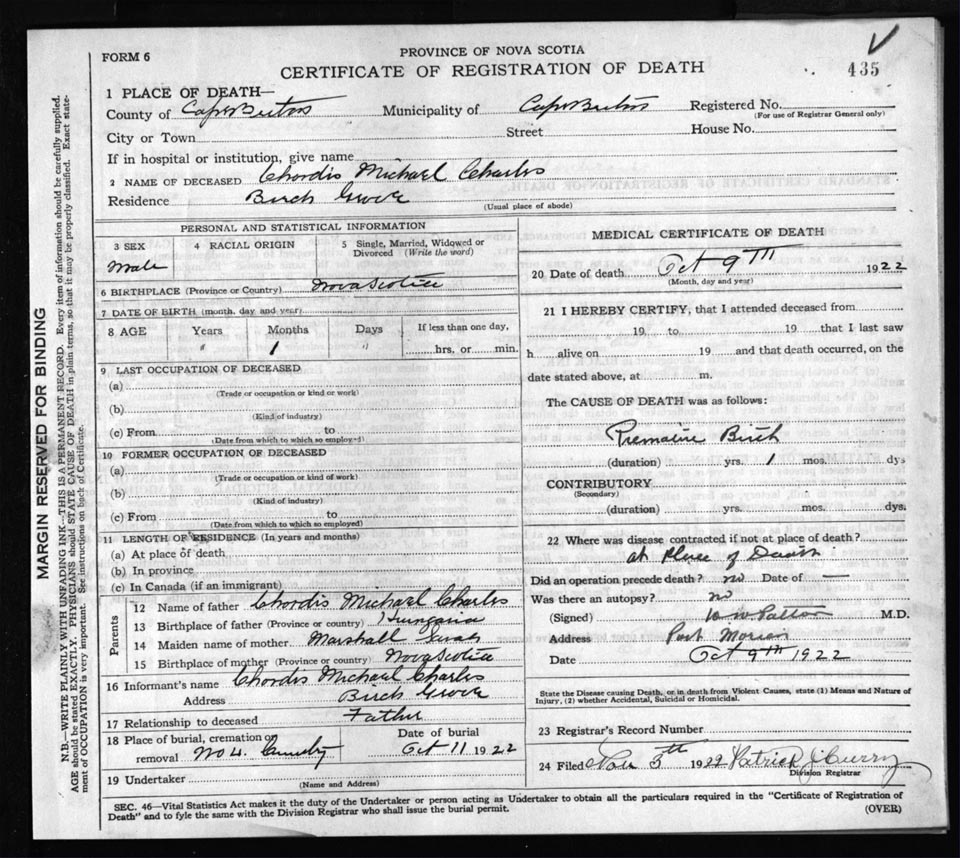 FORM 6
PROVINCE OF NOVA SCOTIA
CERTIFICATE OF REGISTRATION OF DEATH
435
1 PLACE OF DEATH—
County of Cape Breton Municipality of Cape Breton Registered No.
(For use of Registrar General only)
City or Town Street House No.
If in hospital or institution, give name
2 NAME OF DECEASED Chordis Michael Charles
Residence Birch Grove
(Usual place of abode)
PERSONAL AND STATISTICAL INFORMATION
3 SEX 4 RACIAL ORIGIN 5 Single, Married, Widowed or
Divorced (Write the word)
Male
6 BIRTHPLACE (Province or Country) Nova Scotia
7 DATE OF BIRTH (month, day and year)
8 AGE Years Months Days If less than one day,
" 1 " hrs. or min.
9 LAST OCCUPATION OF DECEASED
(a)
(Trade or occupation or kind or work)
(b)
(Kind of industry)
(c) From to
(Date from which to which so employed)
10 FORMER OCCUPATION OF DECEASED
(a)
(Trade or occupation or kind of work)
(b)
(Kind of industry)
(c) From to
(Date from which to which so employed)
11 LENGTH OF RESIDENCE (In years and months)
(a) At place of death
(b) In province
(c) In Canada (if an immigrant)
Parents
12 Name of father Chordis Michael Charles
13 Birthplace of father (Province or country)
14 Maiden name of mother Marshall Sarah
15 Birthplace of mother (Province or country) Nova Scotia
16 Informant's name Chordis Michael Charles
Address Birch Grove
17 Relationship to deceased Father
18 Place of burial, cremation or Date of burial
removal No 4. Oct 11 1922
19 Undertaker
(Name and Address)
MEDICAL CERTIFICATE OF DEATH
20 Date of death Oct 9TH 1922
(Month, day and year)
21 I HEREBY CERTIFY, that I attended deceased from
19 to 19 that I last saw
h alive on 19 and that death occurred, on the
date stated above, at m.
The CAUSE OF DEATH was as follows:
Birth
(duration) yrs. 1 mos. dys
CONTRIBUTORY
(Secondary)
(duration) yrs. mos. dys.
22 Where was disease contracted if not at place of death?
at Place of Death
Did an operation precede death? no Date of —
Was there an autopsy? no
(Signed) Patton M.D.
Address Port Morien
Date Oct 9th 1922
State the Disease causing Death, or in death from Violent Causes, state (1) Means and Nature of
Injury, (2) whether Accidental, Suicidal or Homicidal.
23 Registrar's Record Number
24 Filed Nov 5th 1922 Patrick J Curry
Division Registrar
SEC. 46—Vital Statistics Act makes it the duty of the Undertaker or person acting as Undertaker to obtain all the particulars required in the "Certificate of Registration of
Death" and to fyle the same with the Division Registrar who shall issue the burial permit. (OVER)
MARGIN RESERVED FOR BINDING
N.B.—WRITE PLAINLY WITH UNFADING INK—THIS IS A PERMANENT RECORD. Every item of information should be carefully supplied.
AGE should be stated EXACTLY. PHYSICIANS should STATE CAUSE OF DEATH in plain terms, so that it may be properly classified. Exact state-
ment of OCCUPATION is very important. See instructions on back of Certificate.